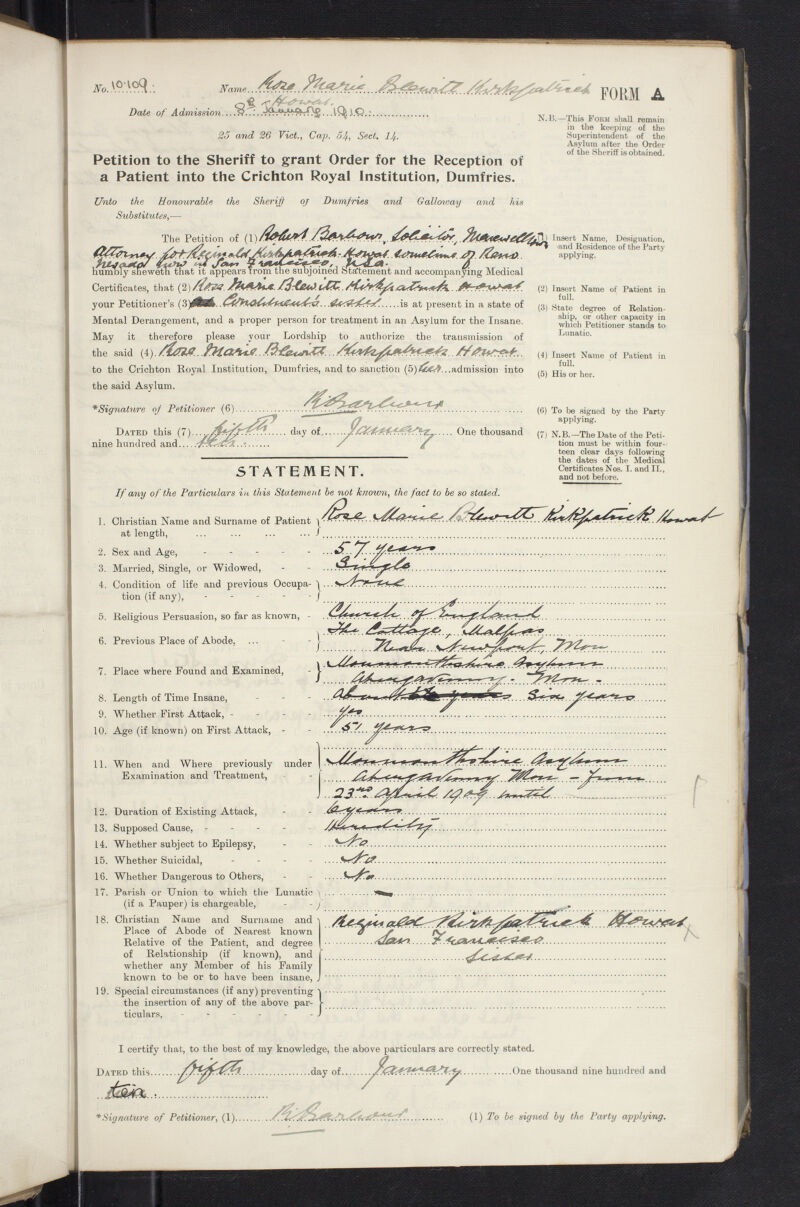 No. 10.109. Name Rose Marie Blewitt Kirkpatrick FORM A
Howat.
Date of Admission 8th January 1910.
25 and 26 Vict., Cap. 54, Sect. 14.
N.B.—This FORM shall remain
in the keeping of the
Superintendent of the
Asylum after the Order
of the Sheriff is obtained.
Petition to the Sheriff to grant Order for the Reception of
a Patient into the Crichton Royal Institution, Dumfries.
Unto the Honourable the Sheriff of Dumfries and Galloway and his
Substitutes,—
The Petition of (1) Robert Barbour, Solicitor, Maxwelltown
Attorney for Reginald Kirkpatrick-Howat sometime of Reno
Nevada now in San Francisco, USA.
humbly sheweth that it appears from the subjoined Statement and accompanying Medical
Certificates, that (2) Rose Marie Blewitt Kirkpatrick Howat
your Petitioner's (3) Constituent's sister is at present in a state of
Mental Derangement, and a proper person for treatment in an Asylum for the Insane.
May it therefore please your Lordship to authorize the transmission of
the said (4) Rose Marie Blewitt Kirkpatrick Howat
to the Crichton Royal Institution, Dumfries, and to sanction (5) her admission into
the said Asylum.
*Signature of Petitioner (6) R Barbour
DATED this (7) fifth day of January One thousand
nine hundred and ten.
(1) Insert Name, Designation,
and Residence of the Party
applying.
(2) Insert Name of Patient in
full.
(3) State degree of Relation-
ship, or other capacity in
which Petitioner stands to
Lunatic.
(4) Insert Name of Patient in
full.
(5) His or her.
(6) To be signed by the Party
applying.
(7) N.B.—The Date of the Peti-
tion must be within four-
teen clear days following
the dates of the Medical
Certificates Nos. I. and II.,
and not before.
STATEMENT.
If any of the Particulars in this Statement be not known, the fact to be so stated.
1. Christian Name and Surname of Patient
at length, Rose Marie Blewitt Kirkpatrick Howat
2. Sex and Age, 57 years
3. Married, Single, or Widowed, Single
4. Condition of life and previous Occupa-
tion (if any), None
5. Religious Persuasion, so far as known, Church of England
6. Previous Place of Abode, The Cottage, Malpas
Near Newport, Mon
7. Place where Found and Examined, Monmonthshire Asylum
Abergavenny. Mon.
8. Length of Time Insane, About years Six years
9. Whether First Attack, yes
10. Age (if known) on First Attack, 51 years
11. When and Where previously under
Examination and Treatment, Monmonthshire Asylum
Abergavenny Mon – from
23rd April 1909 until
12. Duration of Existing Attack, 6 years
13. Supposed Cause, Heredity
14. Whether subject to Epilepsy, No
15. Whether Suicidal, No
16. Whether Dangerous to Others, No
17. Parish or Union to which the Lunatic
(if a Pauper) is chargeable, —
18. Christian Name and Surname and
Place of Abode of Nearest known
Relative of the Patient, and degree
of Relationship (if known), and
whether any Member of his Family
known to be or to have been insane,
Reginald Kirkpatrick Howat
San Francisco
Sister
19. Special circumstances (if any) preventing
the insertion of any of the above par-
ticulars,
I certify that, to the best of my knowledge, the above particulars are correctly stated.
DATED this fifth day of January One thousand nine hundred and
ten.
*Signature of Petitioner, (1) R. Barbour (1) To be signed by the Party applying.